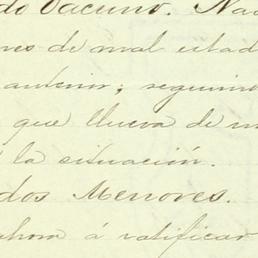 do Vacuno. Na
res de mal estad
anterior; seguimo
que llueva de
la situación.
dos Menores.
ahora á ratificar